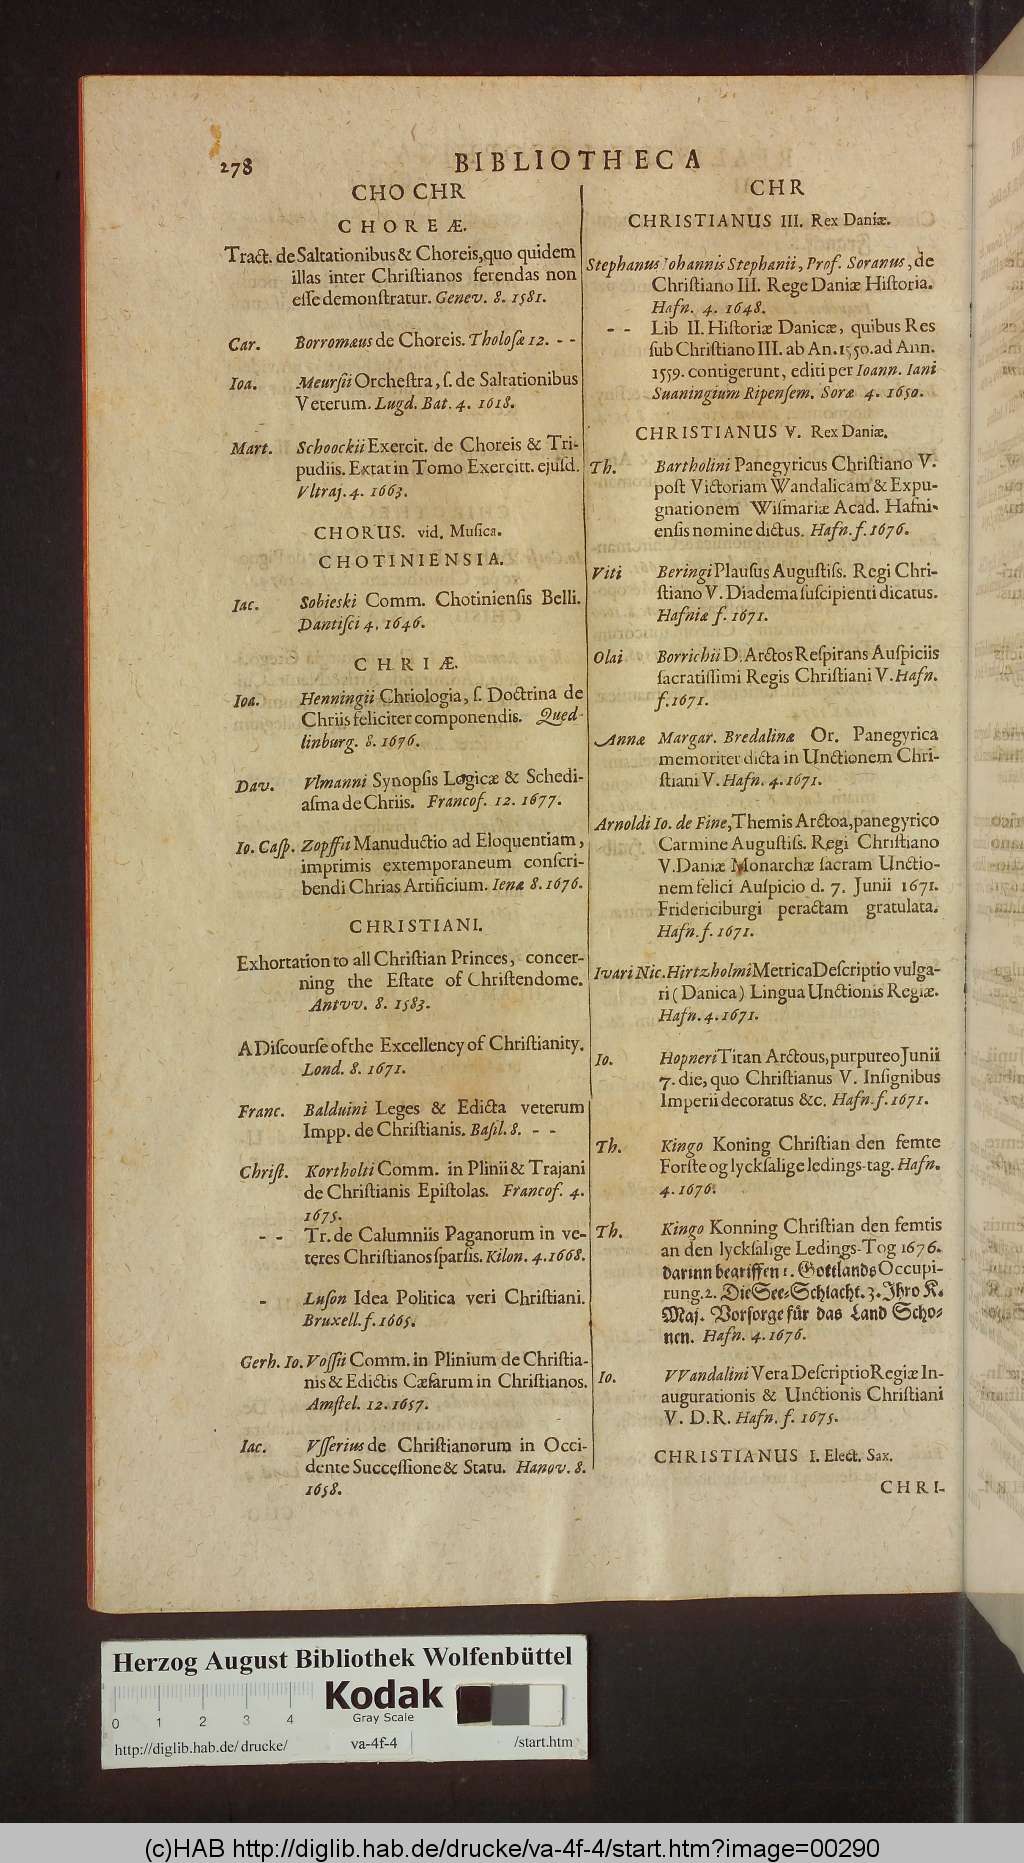 278
BIBLIOTHECA
CHO CHR
CHOREÆ.
Tract. de Saltationibus & Choreis, quo quidem
illas inter Chriſtianos ferendas non
eſſe demonſtratur. Genev. 8. 1581.
Car. Borromæus de Choreis. Tholoſæ 12. - -
Ioa. Meurſii Orcheſtra, ſ. de Saltationibus
Veterum. Lugd. Bat. 4. 1618.
Mart. Schoockii Exercit. de Choreis & Tri-
pudiis. Extat in Tomo Exercitt. ejuſd.
Vltraj. 4. 1663.
CHORUS. vid. Muſica.
CHOTINIENSIA.
Iac. Sobieski Comm. Chotinienſis Belli.
Dantiſci 4. 1646.
CHRIÆ.
Ioa. Henningii Chriologia, ſ. Doctrina de
Chriis feliciter componendis. Qued-
linburg. 8. 1676.
Dav. Vlmanni Synopſis Logicæ & Schedi-
aſma de Chriis. Francof. 12. 1677.
Io. Caſp. Zopffii Manuductio ad Eloquentiam,
imprimis extemporaneum conſcri-
bendi Chrias Artificium. Ienæ 8. 1676.
CHRISTIANI.
Exhortation to all Chriſtian Princes, concer-
ning the Eſtate of Chriſtendome.
Antvv. 8. 1583.
A Diſcourſe of the Excellency of Chriſtianity.
Lond. 8. 1671.
Franc. Balduini Leges & Edicta veterum
Impp. de Chriſtianis. Baſil. 8. - -
Chriſt. Kortholti Comm. in Plinii & Trajani
de Chriſtianis Epiſtolas. Francof. 4.
1675.
- - Tr. de Calumniis Paganorum in ve-
teres Chriſtianos ſparſis. Kilon. 4. 1668.
- Luſon Idea Politica veri Chriſtiani.
Bruxell. f. 1665.
Gerh. Io. Voſſii Comm. in Plinium de Chriſtia-
nis & Edictis Cæſarum in Chriſtianos.
Amſtel. 12. 1657.
Iac. Vſſerius de Chriſtianorum in Occi-
dente Succeſſione & Statu. Hanov. 8.
1658.
CHR
CHRISTIANUS III. Rex Daniæ.
Stephanus Johannis Stephanii, Prof. Soranus, de
Chriſtiano III. Rege Daniæ Hiſtoria.
Hafn. 4. 1648.
- - Lib II. Hiſtoriæ Danicæ, quibus Res
ſub Chriſtiano III. ab An. 1550. ad Ann.
1559. contigerunt, editi per Ioann. Iani
Suaningium Ripenſem. Soræ 4. 1650.
CHRISTIANUS V. Rex Daniæ.
Th. Bartholini Panegyricus Chriſtiano V.
poſt Victoriam Wandalicam & Expu-
gnationem Wiſmariæ Acad. Hafni-
enſis nomine dictus. Hafn. f. 1676.
Viti Beringi Plauſus Auguſtiſs. Regi Chri-
ſtiano V. Diadema ſuſcipienti dicatus.
Hafniæ f. 1671.
Olai Borrichii D. Arctos Reſpirans Auſpiciis
ſacratiſſimi Regis Chriſtiani V. Hafn.
f. 1671.
Annæ Margar. Bredalinæ Or. Panegyrica
memoriter dicta in Unctionem Chri-
ſtiani V. Hafn. 4. 1671.
Arnoldi Io. de Fine, Themis Arctoa, panegyrico
Carmine Auguſtiſs. Regi Chriſtiano
V. Daniæ Monarchæ ſacram Unctio-
nem felici Auſpicio d. 7. Junii 1671.
Fridericiburgi peractam gratulata.
Hafn. f. 1671.
Ivari Nic. Hirtzholmi Metrica Deſcriptio vulga-
ri (Danica) Lingua Unctionis Regiæ.
Hafn. 4. 1671.
Io. Hopneri Titan Arctous, purpureo Junii
7. die, quo Chriſtianus V. Inſignibus
Imperii decoratus &c. Hafn. f. 1671.
Th. Kingo Koning Chriſtian den femte
Forſte og lyckſalige ledings-tag. Hafn.
4. 1676.
Th. Kingo Konning Chriſtian den femtis
an den lyckſalige Ledings-Tog 1676.
darinn begriffen 1. Gottlands Occupi-
rung. 2. Die See-Schlacht. 3. Ihro K.
Maj. Vorſorge für das Land Scho-
nen. Hafn. 4. 1676.
Io. VVandalini Vera Deſcriptio Regiæ In-
augurationis & Unctionis Chriſtiani
V. D. R. Hafn. f. 1675.
CHRISTIANUS I. Elect. Sax.
CHRI-
Herzog August Bibliothek Wolfenbüttel
Kodak
Gray Scale
0 1 2 3 4
http://diglib.hab.de/drucke/ va-4f-4 /start.htm
(c)HAB http://diglib.hab.de/drucke/va-4f-4/start.htm?image=00290